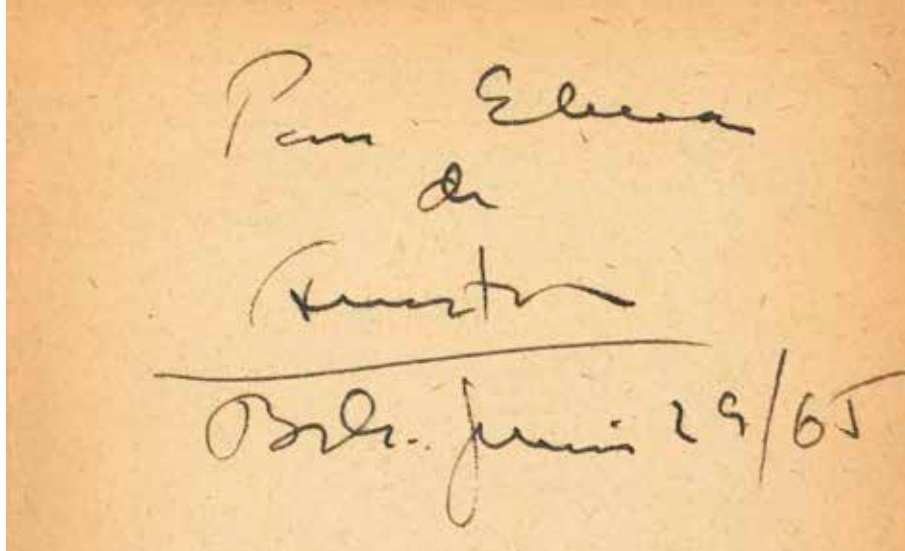 Para Elena
de
Ernesto
Bogb. Junio 29/65